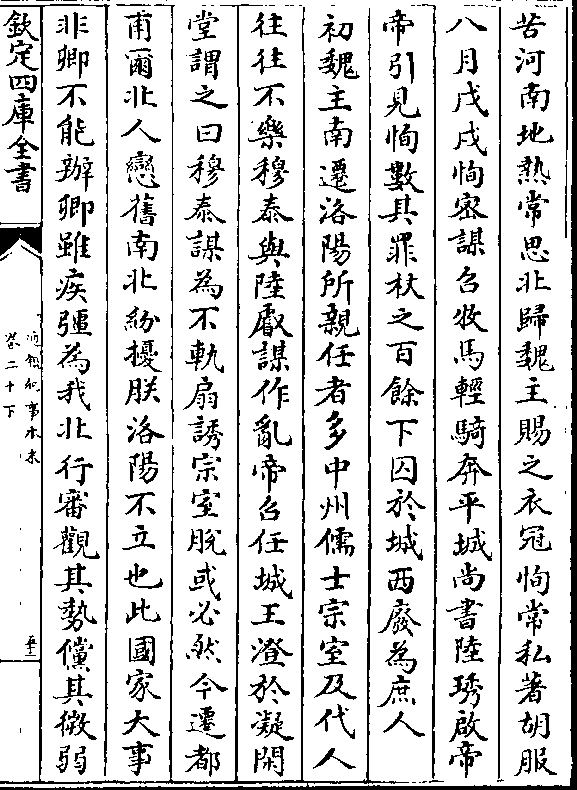 苦河南地熱常思北歸魏主賜之衣冠恂常私著胡服
八月戊戌恂密謀召牧馬輕騎奔平城尚書陸琇啟帝
帝引見恂數其罪杖之百餘下囚於城西廢為庶人
初魏主南遷洛陽所親任者多中州儒士宗室及代人
往往不樂穆泰與陸叡謀作亂帝召任城王澄於凝閒
堂謂之曰穆泰謀為不軌扇誘宗室脫或必然今遷都
甫爾北人戀舊南北紛擾朕洛陽不立也此國家大事
非卿不能辦卿雖疾彊為我北行審觀其勢儻其微弱
欽定四庫全書
通鑑紀事本末
卷二十下